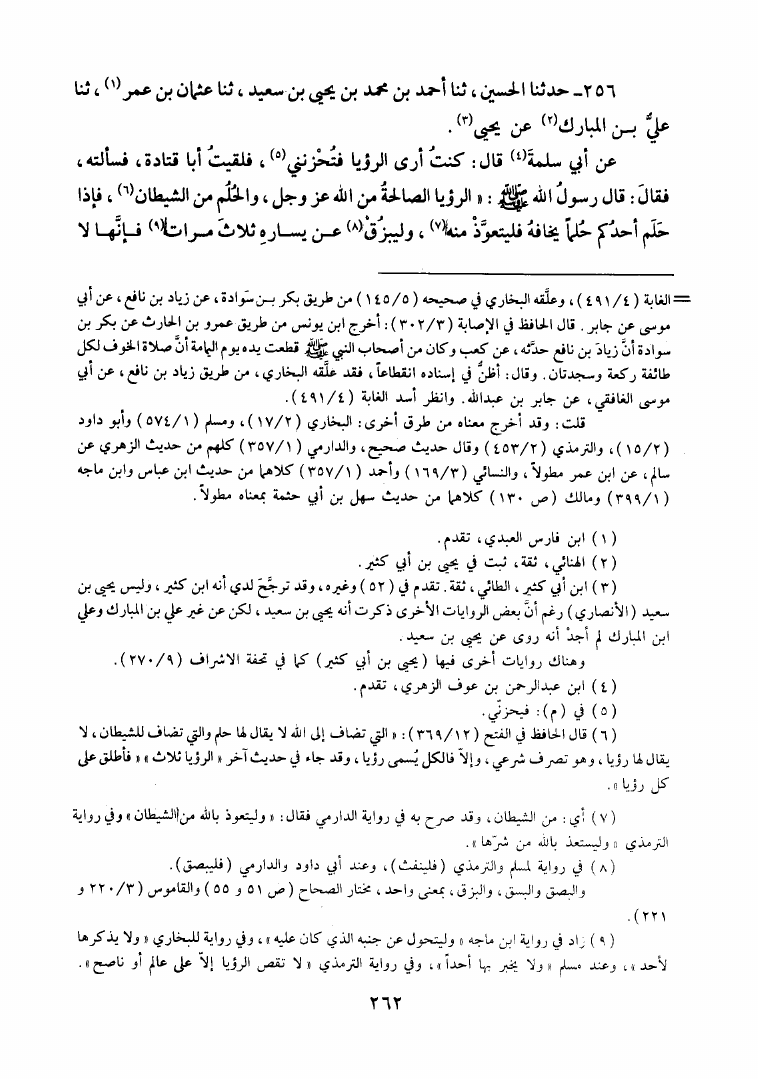 ٢٥٦ـ حدثنا الحسين ، ثنا أحمد بن محمد بن يحيى بن سعيد ، ثنا عثمان بن عمر(١) ، ثنا
عليُّ بــن المبارك(٢) عن يحيى(٣) .
عن أبي سلمةَ(٤) قال : كنتُ أرى الرؤيا فتُحْزِنني(٥) ، فلقيتُ أبا قتادة ، فسألته ،
فقالَ : قال رسولُ الله ﷺ : « الرؤيا الصالحةُ من الله عز وجل ، والحُلُم من الشيطان(٦) ، فإذا
حَلَم أحدُكم حُلماً يخافهُ فليتعوَّذْ منه(٧) ، وليبزُقْ(٨) عــن يســارهِ ثلاثَ مــرات(٩) فــإنَّهــا لا
= الغابة (٤٩١/٤) ، وعلَّقه البخاري في صحيحه (١٤٥/٥) من طريق بكر بــن سَوادة ، عن زياد بن نافع ، عن أبي
موسى عن جابر . قال الحافظ في الإصابة (٣٠٢/٣) : أخرج ابن يونس من طريق عمرو بن الحارث عن بكر بن
سوادة أنَّ زيادَ بن نافع حدَّثه ، عن كعب وكان من أصحاب النبي ﷺ قطعت يده يوم اليمامة أنَّ صلاة الخوف لكل
طائفة ركعة وسجدتان . وقال : أظنُّ في إسناده انقطاعاً ، فقد علَّقه البخاري ، من طريق زياد بن نافع ، عن أبي
موسى الغافقي ، عن جابر بن عبدالله . وانظر أسد الغابة (٤٩١/٤) .
قلت : وقد أخرج معناه من طرق أخرى : البخاري (١٧/٢) ، ومسلم (٥٧٤/١) وأبو داود
(١٥/٢) ، والترمذي (٤٥٣/٢) وقال حديث صحيح ، والدارمي (٣٥٧/١) كلهم من حديث الزهري عن
سالم ، عن ابن عمر مطولاً ، والنسائي (١٦٩/٣) وأحمد (٣٥٧/١) كلاهما من حديث ابن عباس وابن ماجه
(٣٩٩/١) ومالك (ص ١٣٠) كلاهما من حديث سهل بن أبي حثمة بمعناه مطولاً .
(١) ابن فارس العبدي ، تقدم .
(٢) الهنائي ، ثقة ، ثبت في يحيى بن أبي كثير .
(٣) ابن أبي كثير ، الطائي ، ثقة . تقدم في (٥٢) وغيره ، وقد ترجَّحَ لدي أنه ابن كثير ، وليس يحيى بن
سعيد (الأنصاري) رغم أنَّ بعض الروايات الأخرى ذكرت أنه يحيى بن سعيد ، لكن عن غير علي بن المبارك وعلي
ابن المبارك لم أجدْ أنه روى عن يحيى بن سعيد .
وهناك روايات أخرى فيها (يحيى بن أبي كثير) كما في تحفة الاشراف (٢٧٠/٩) .
(٤) ابن عبدالرحمن بن عوف الزهري ، تقدم .
(٥) في (م) : فيحزنّي .
(٦) قال الحافظ في الفتح (٣٦٩/١٢) : « التي تضاف إلى الله لا يقال لها حلم والتي تضاف للشيطان ، لا
يقال لها رؤيا ، وهو تصرف شرعي ، وإلاّ فالكل يُسمى رؤيا ، وقد جاء في حديث آخر « الرؤيا ثلاث » « فأطلق على
كل رؤيا » .
(٧) أي : من الشيطان ، وقد صرح به في رواية الدارمي فقال : « وليتعوذ بالله من الشيطان » وفي رواية
الترمذي « وليستعذ بالله من شرّها » .
(٨) في رواية لمسلم والترمذي (فلينفث) ، وعند أبي داود والدارمي (فليبصق) .
والبصق والبسق ، والبزق ، بمعنى واحد ، مختار الصحاح (ص ٥١ و ٥٥) والقاموس (٢٢٠/٣ و
٢٢١) .
(٩) زاد في رواية ابن ماجه « وليتحول عن جنبه الذي كان عليه » ، وفي رواية للبخاري « ولا يذكرها
لأحد » ، وعند مسلم « ولا يخبر بها أحداً » ، وفي رواية الترمذي « لا تقص الرؤيا إلاّ على عالم أو ناصح » .
٢٦٢